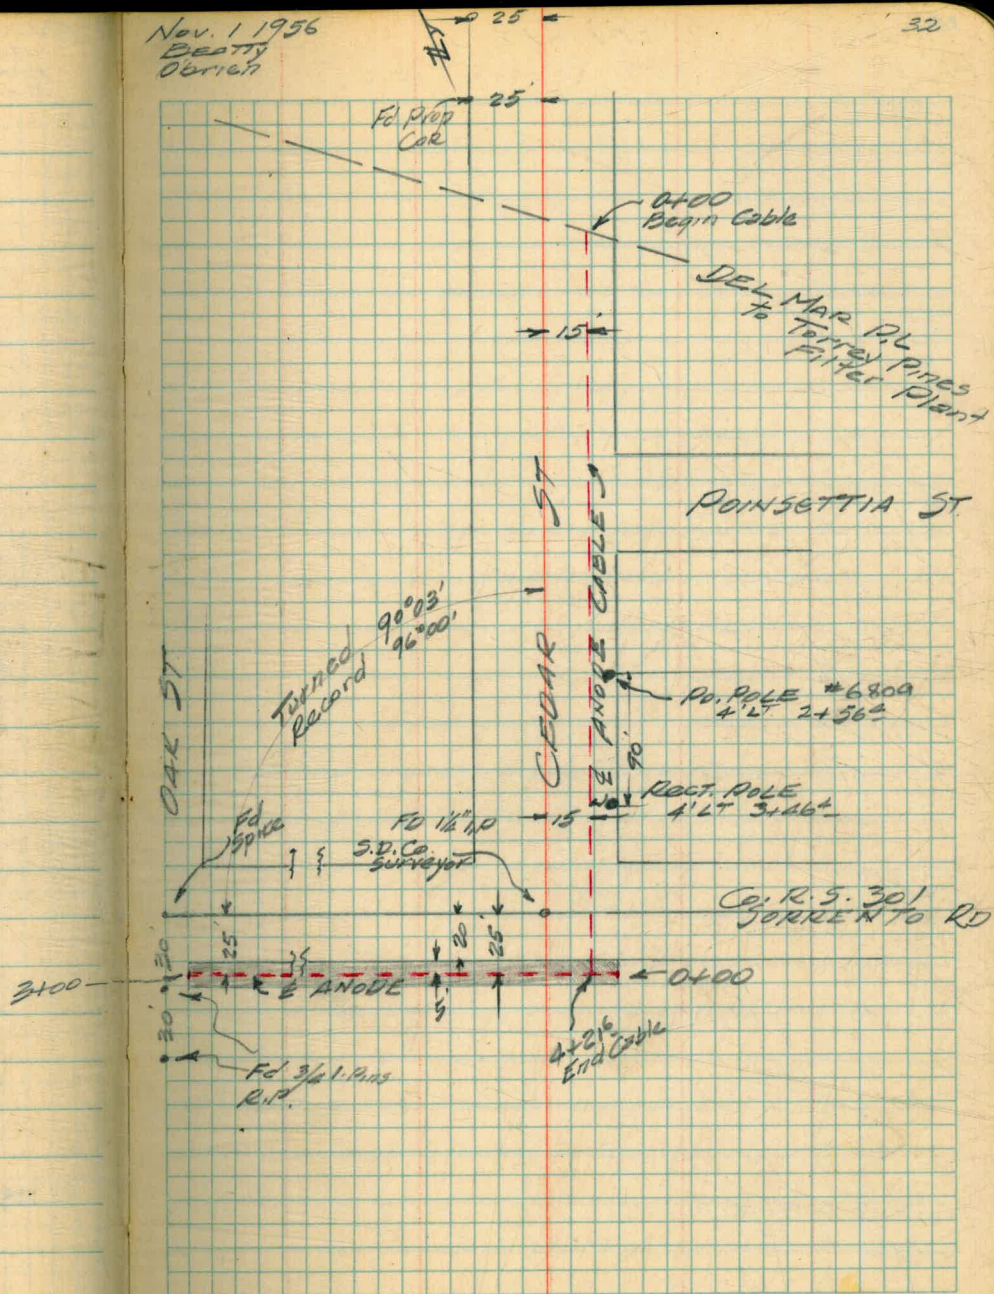 Nov. 1 1956
32
Beatty
O'brien
25'
25'
Fd Prop
Cor
0+00
Begin Cable
DEL MAR P.L.
to Torrey Pines
Filter Plant
15'
POINSETTIA ST.
CEDAR ST
℄ ANODE CABLE
Turned 90°03'
Record 96°00'
OAK ST
Po. POLE #6809
4' LT 2+56±
90'
RECT. POLE
4' LT 3+46±
15
Fd
Spike
FD 1½" I.P
S.D.Co.
Surveyor
Co. R.S. 301
SORRENTO RD
25'
20'
25'
20'
3+00
℄ ANODE
0+00
5'
30'
4+21⁶
End Cable
Fd 3/4 I. Pins
R.P.